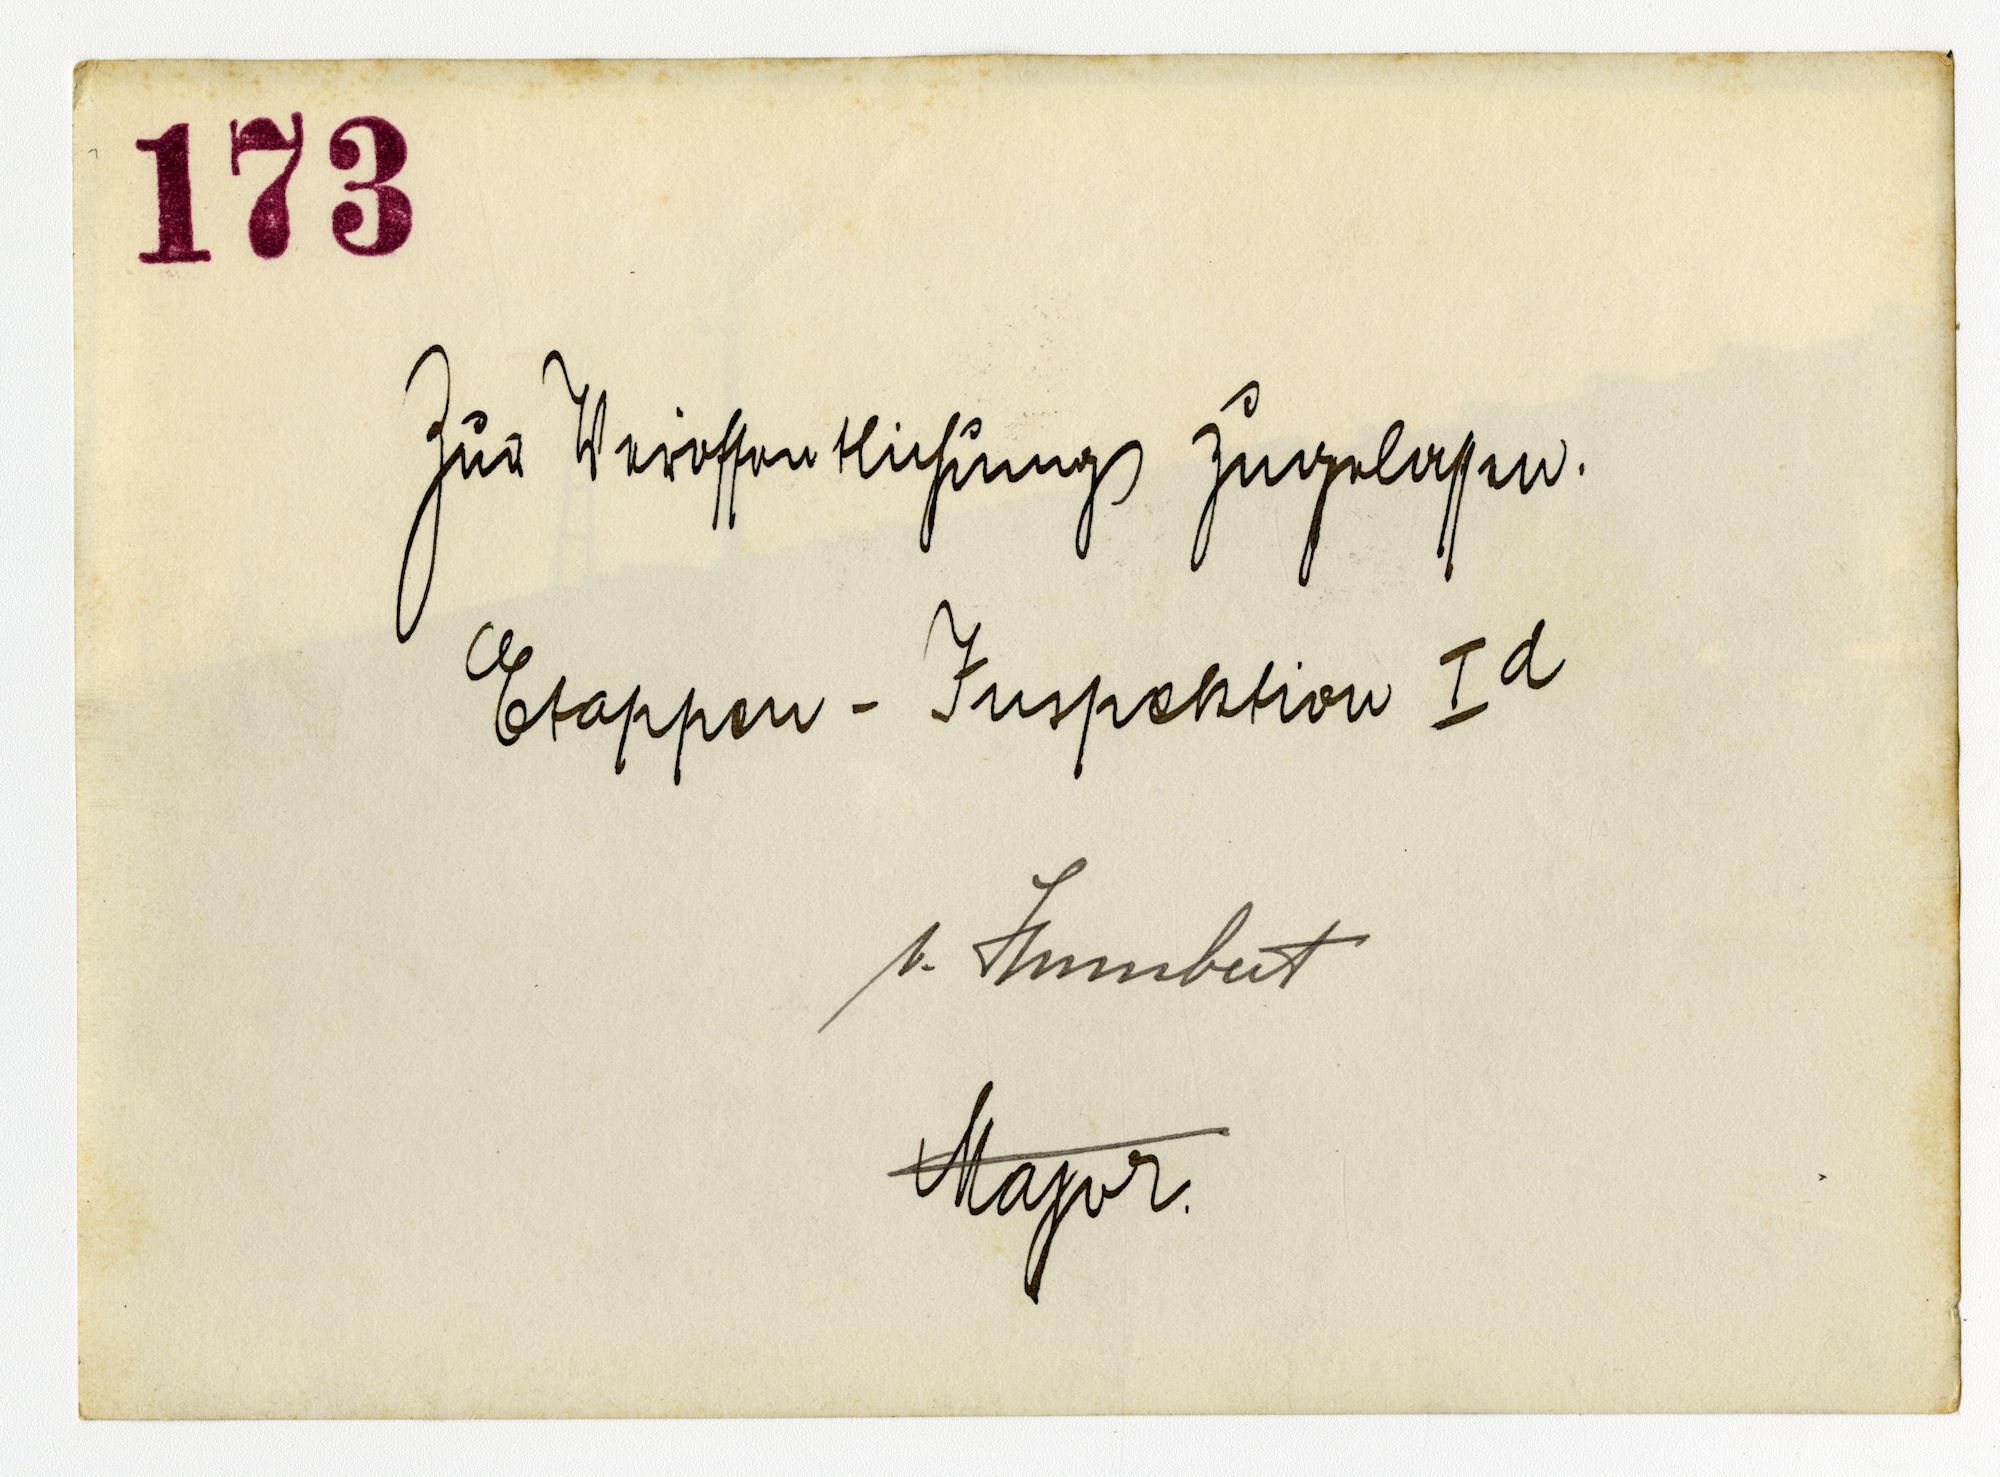 173
Zur Veröffentlichung zugelassen.
Etappen - Inspektion I d
v. Humbert
Major.